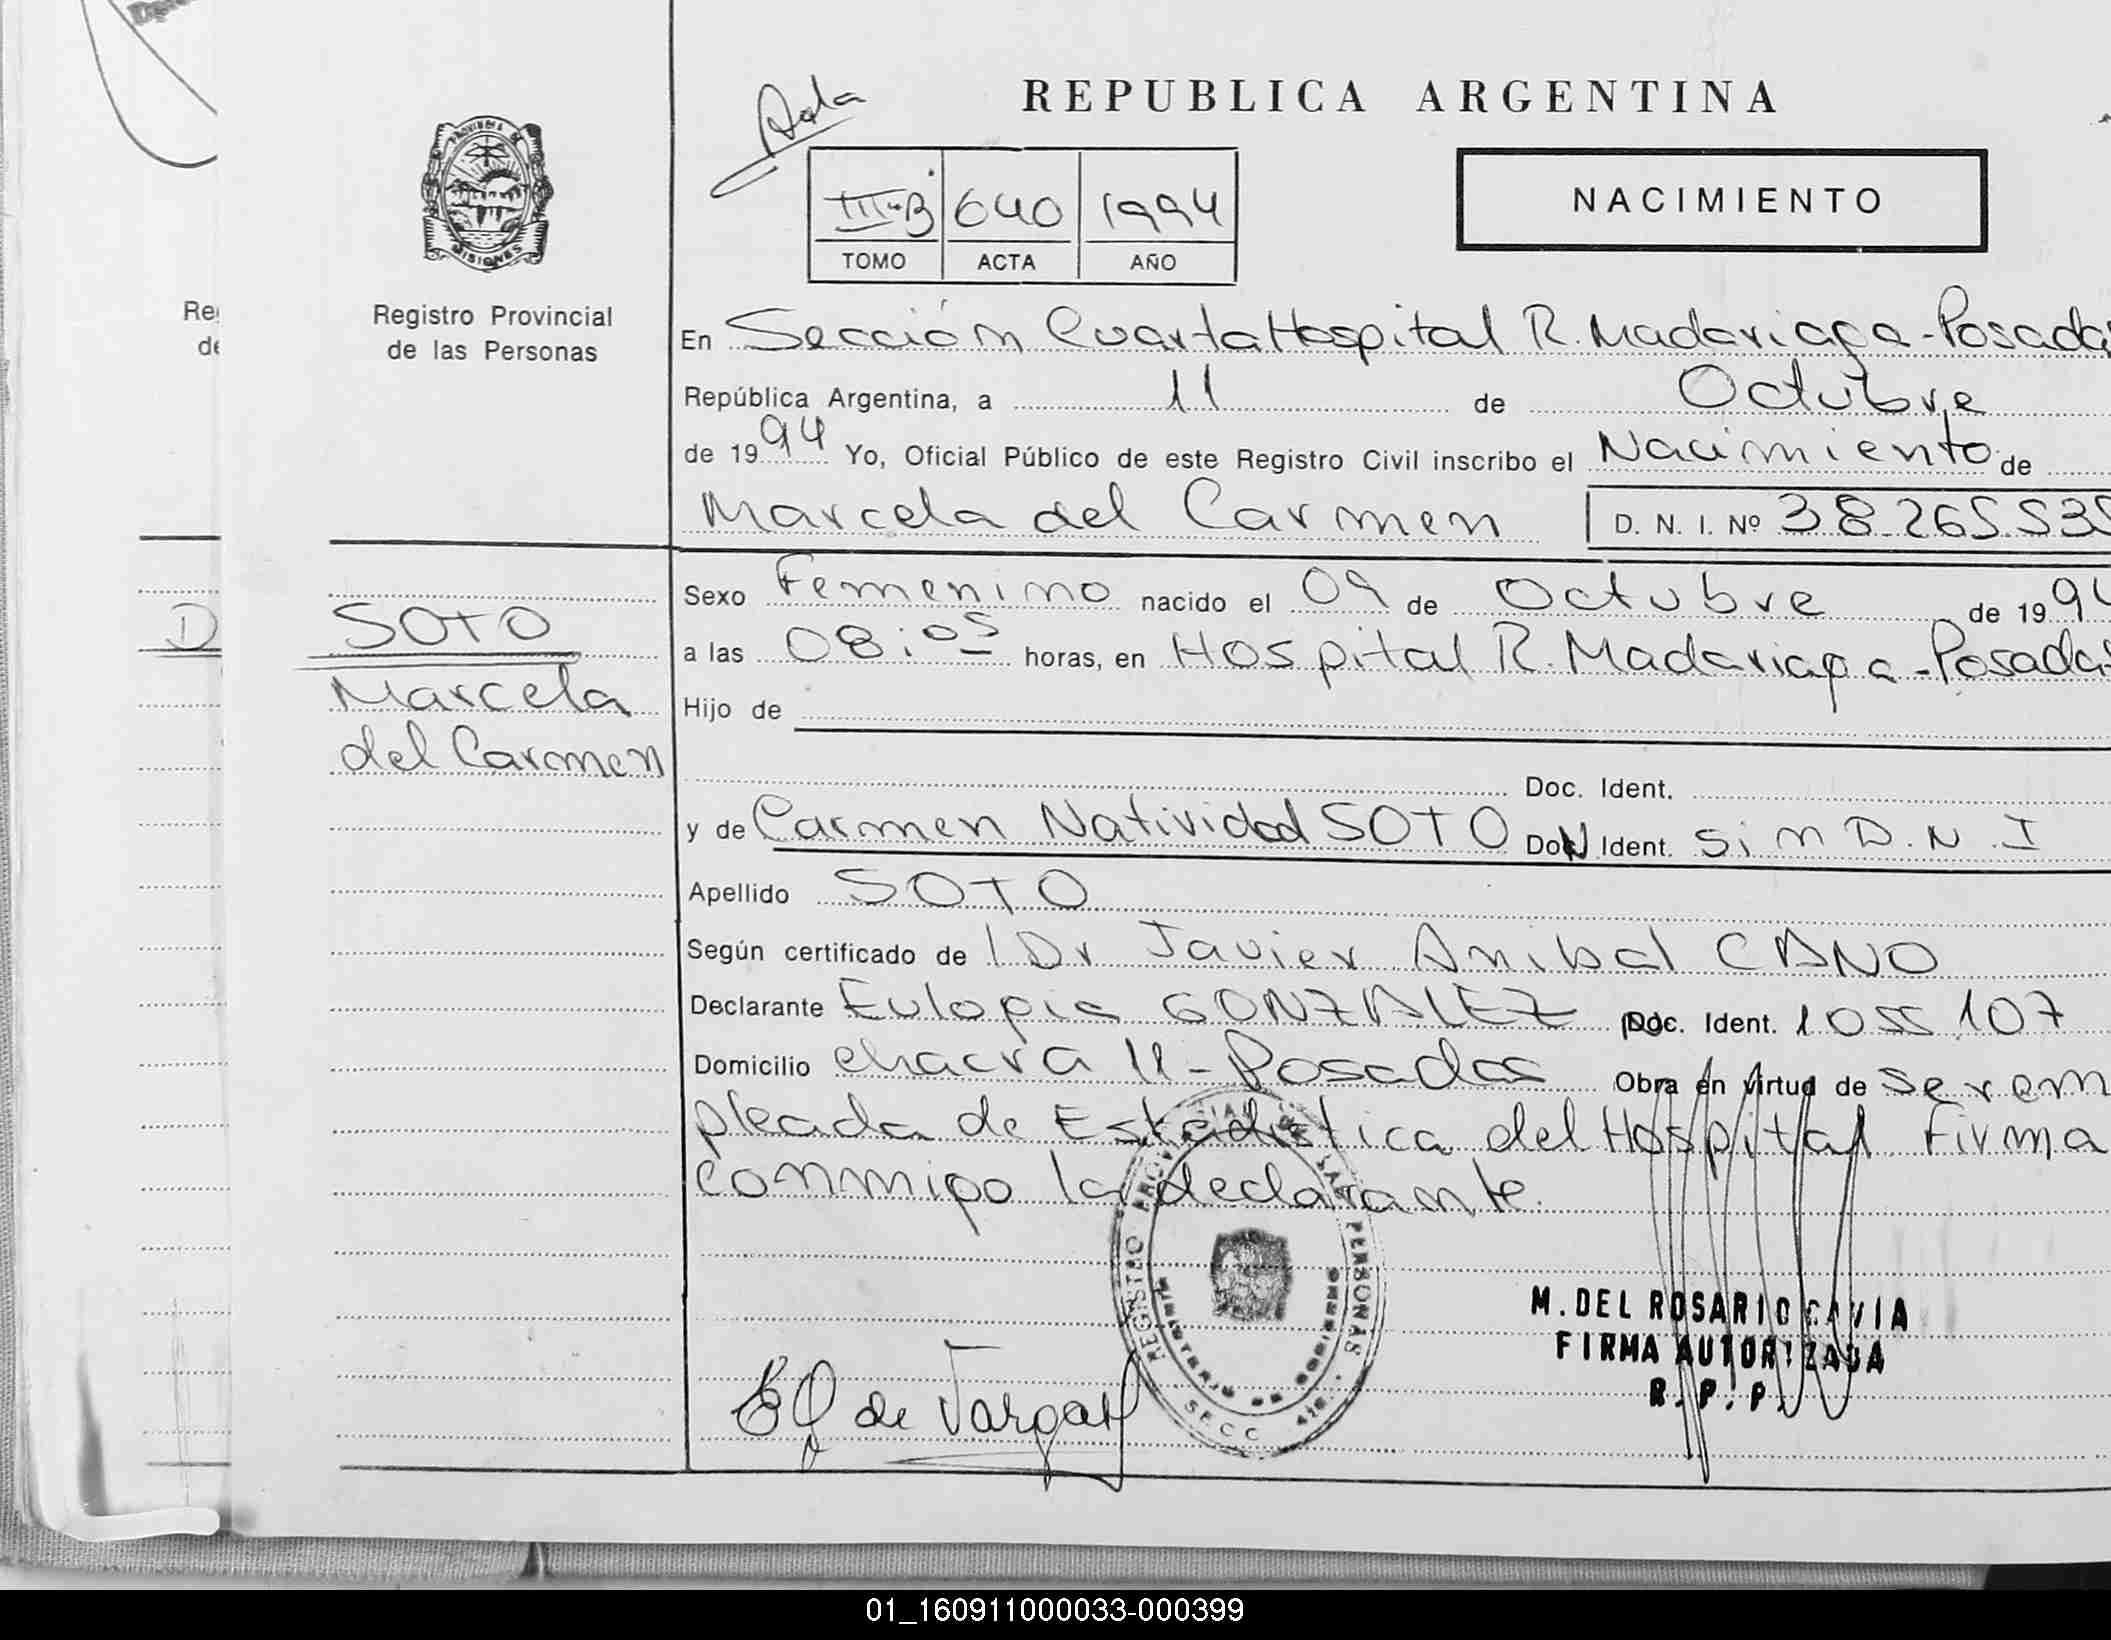 Acta
REPUBLICA ARGENTINA
III-B 640 1994
TOMO ACTA AÑO
NACIMIENTO
PROVINCIA DE MISIONES
Registro Provincial
de las Personas
En Sección Cuarta Hospital R. Madariaga - Posadas
República Argentina, a 11 de Octubre
de 1994 Yo, Oficial Público de este Registro Civil inscribo el Nacimiento de
Marcela del Carmen D. N. I. Nº 38.265.535
Sexo Femenino nacido el 09 de Octubre de 1994
a las 08:05 horas, en Hospital R. Madariaga - Posadas
Hijo de
Doc. Ident.
y de Carmen Natividad SOTO Doc. Ident. Sin D.N.I
Apellido SOTO
Según certificado de Dr Javier Anibal CANO
Declarante Eulogia GONZALEZ Doc. Ident. 1055107
Domicilio chacra 11 - Posadas Obra en virtud de ser em
pleada de Estadistica del Hospital Firma
conmigo la declarante.
SOTO
Marcela
del Carmen
Re
de
D
REGISTRO PROVINCIAL DE LAS PERSONAS
MINISTERIO DE GOBIERNO
SECC 4ta.
EG de Vargas
M. DEL ROSARIO GAVIA
FIRMA AUTORIZADA
R. P. P.
01_160911000033-000399